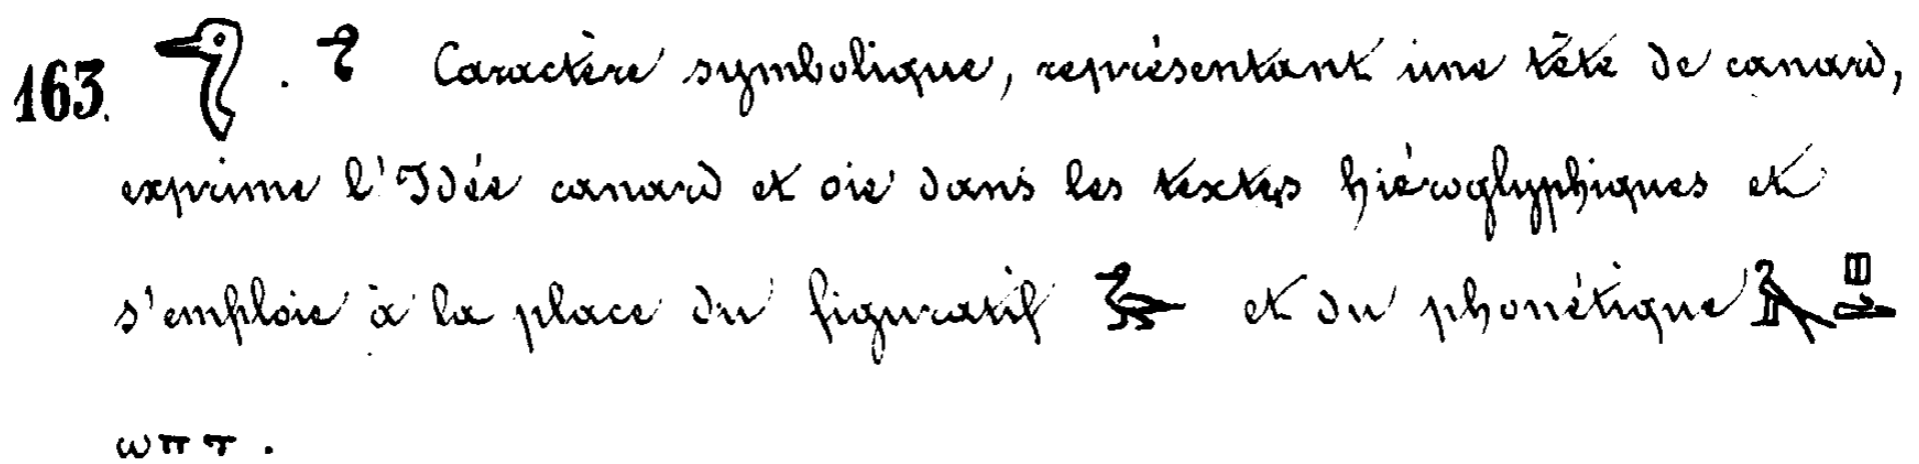 163. 𓅿 . Caractère symbolique, représentant une tête de canard,
exprime l'Idée canard et oie dans les textes hiéroglyphiques et
s'emploie à la place du figuratif 𓅬 et du phonétique 𓄿𓊪𓂧
ⲱⲡⲧ .